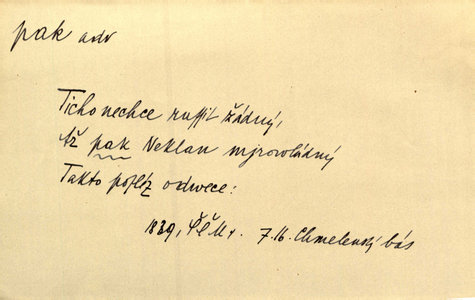 pak adv
Ticho nechce russit žádný,
Až pak Neklan mjrowládný
Takto posléz odwece:
1839, ČČM. 7.16. Chmelenský bás